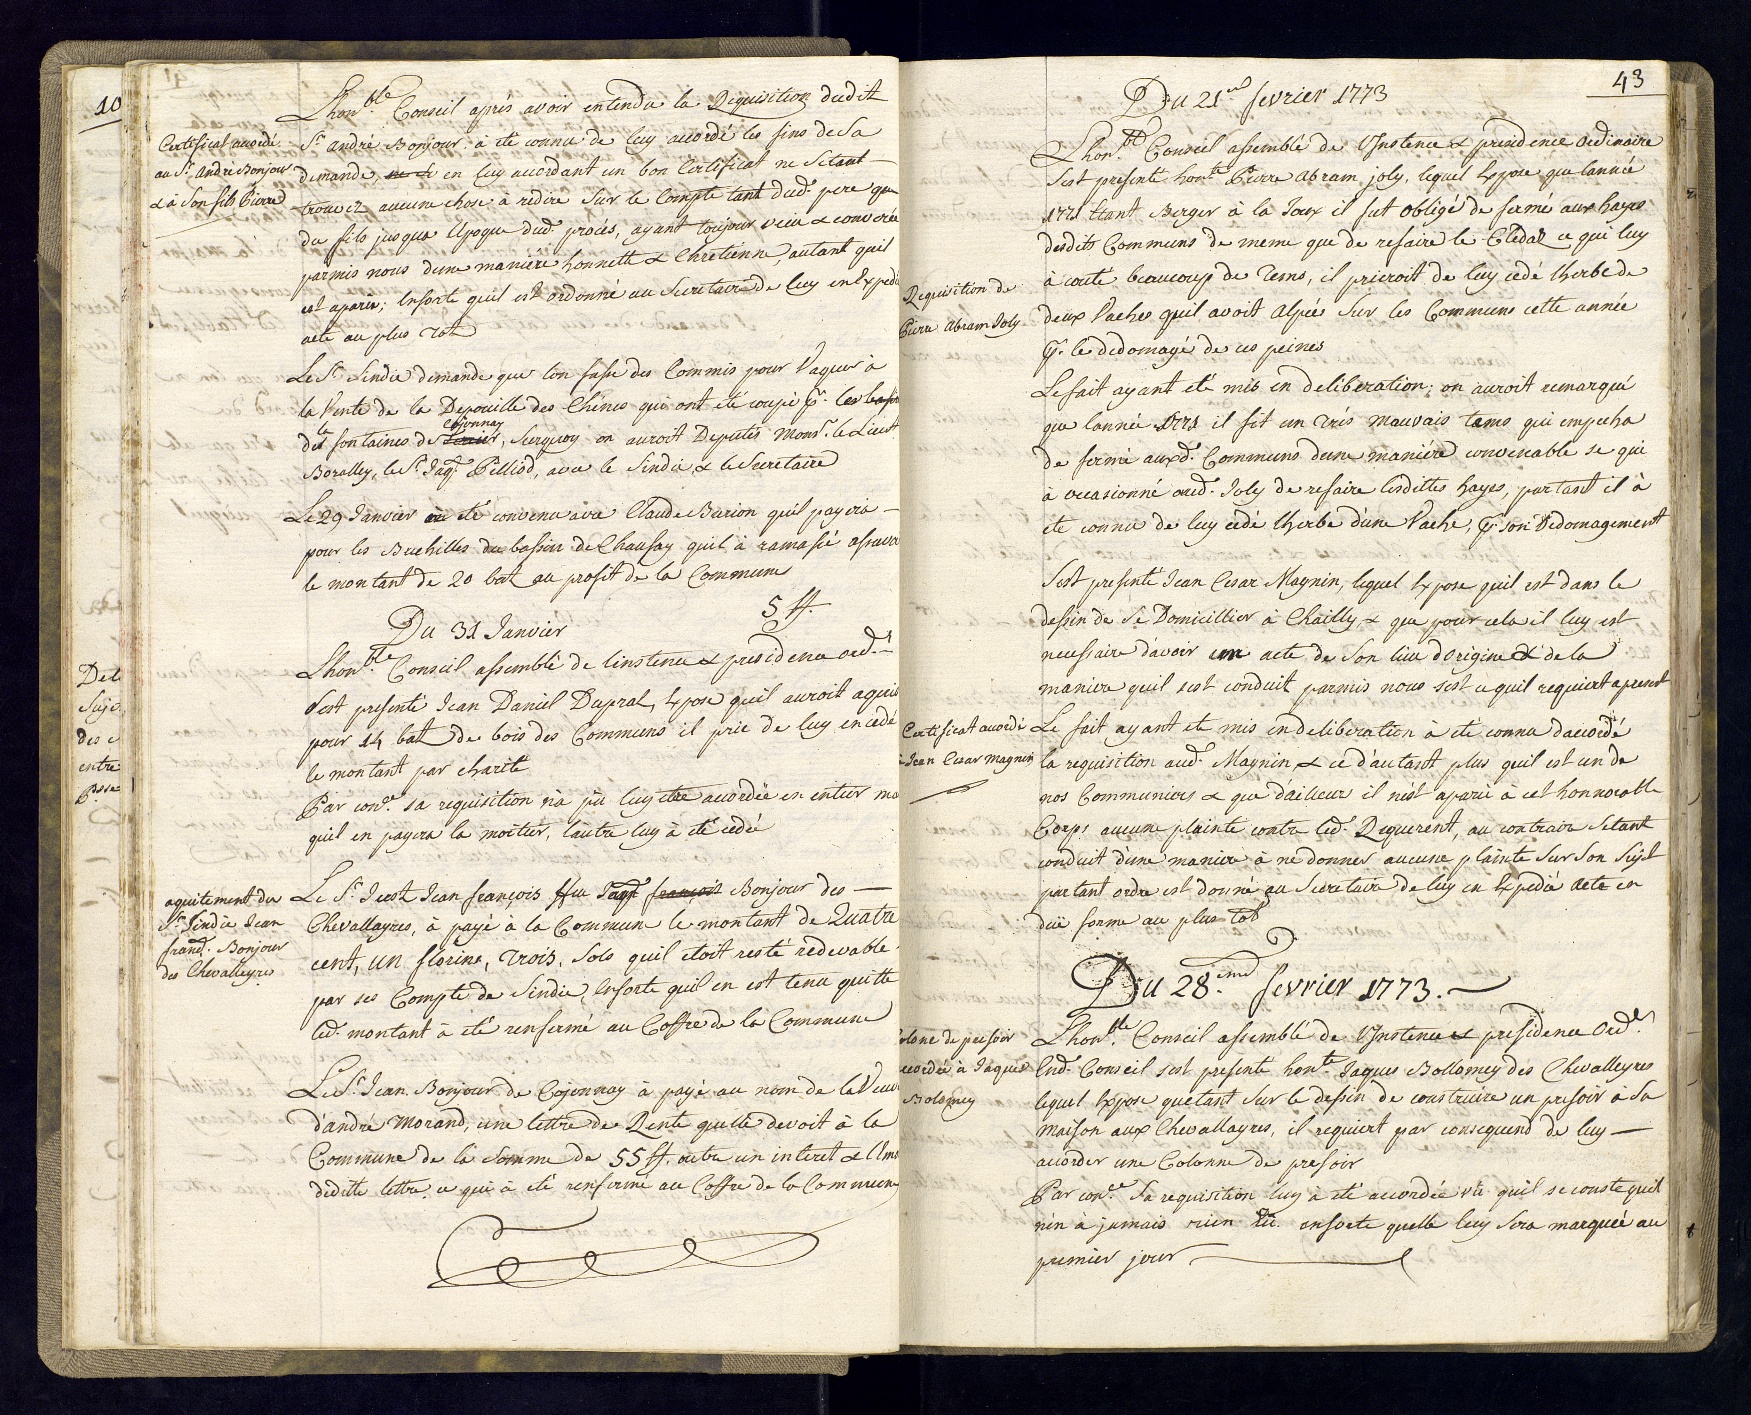 Lhon.ble Conseil aprés avoir entendu la Requisition dudit
Certificat accordé
au Sr. André Bonjour
& à Son fils Pierre
Sr. andré Bonjour, à été connu de luy accordé les fins de Sa
demande, en luy accordant un bon Certificat ne Setant
trouvez aucune chose à redire Sur le Compte tant dud. pere que
du fils jusqua lépoque dud. procés, ayant toujour vecu & converée
parmis nous dune maniére honnette & Chretienne, autant quil
est aparu; Ensorte quil est ordonné au Secretaire de luy en Expedié
acte au plus tot
Le Sr. Sindic demande que lon fasse des Commis pour Vaquer à
la Vente de la Depouille des Chénes qui ont été coupé pr. les bassi
Cojonnay
des fontaines de, Surquoy on auroit Deputés Monsr. le Lieut.
Boralley, le Sr. Jaq. Pilliod, avec le Sindic & le Secretaire
Le 29 Janvier à été convenu avec Claude Burion quil payera
pour les Buchilles du bassin de Chaufay quil à ramassé
le montant de 20 batz au profit de la Commune
5 ff.
Du 31 Janvier
Lhon.ble Conseil assemblé de linstence & presidence ord.
Sest presenté Jean Daniel Dupraz, Expose quil auroit aquis
pour 14 batz de bois des Communs il prie de luy en cedé
le montant par charité
Par con.ce sa requisition na pu luy être accordée en entier mais
quil en payera la moitier, lautre luy à été cedé
aquitement du
Sr. Sindic Jean
franç. Bonjour
des Chevalleyres
Le Sr. Just Jean françois ffeu Jaq. françois Bonjour des
Chevallayres, à payé à la Commune le montant de Quatre
cent, un florins, trois, Sols quil étoit resté redevable
par ses Compte de Sindic, Ensorte quil en est tenu quitte
led. montant à été renfermé au Coffre de la Commune
Le Sr. Jean Bonjour de Cojonnay à payé au nom de la Veuve
d'andré Morand, une lettre de Rente quelle devoit à la
Commune de la Somme de 55 ff. outre un interet &
dedite lettre, ce qui à été renfermé au Coffre de la Commune
43
Du 21me fevrier 1773
Lhon.ble Conseil assemblé de l'Instence & presidence ordinaire
Sest presenté hon.te Pierre Abram Joly, lequel Expose que lannée
1771 Etant Berger à la Joux il fut obligé de fermé aux hayes
desdits Communs de meme que de refaire le Cledal ce qui luy
Requisition de
Pierre Abram Joly
à couté beaucoup de Tems, il prieroit de luy cedé lherbe de
deux Vaches quil avoit alpée Sur les Communs cette année
pr. le dedomagé de ces peines
Le fait ayant été mis en deliberation; on auroit remarqué
que lannée 1771 il fit un trés mauvais tems qui empecha
de fermé auxd. Communs dune maniére convenable se qui
à occasionné aud. Joly de refaire lesdittes hayes, partant il à
été connu de luy cedé lherbe dune Vache, pr. Son Dedomagement
Sest presenté Jean Cesar Magnin, lequel Expose quil est dans le
dessin de Se Domicillier à Chailly, & que pour cela il luy est
necessaire davoir un acte de Son lieu dorigine & de la
maniere quil sest conduit parmis nous sest ce quil requiert apresent
Certificat accordé
à Jean Cesar Magnin
Le fait ayant été mis en deliberation à été connu daccordé
la requisition aud. Magnin & ce d'autant plus quil est un de
nos Communiers & que d'ailleur il nest aparu à cet honnorable
Corps aucune plainte contre led. Requerent, au contraire Setant
conduit d'une maniere à ne donner aucune plainte Sur Son Sujet
partant ordre est donné au Secretaire de luy en Expedié acte en
due forme au plus tot
Du 28.eme fevrier 1773.
Lhon.ble Conseil assemblé de l'Instence & presidence Ord.e
Colone de pressoir
accordée à Jaques
Bolomey
End. Conseil sest presenté hon.te Jaques Bollomey des Chevalleyres
lequel Expose quetant Sur le dessin de construire un presoir à Sa
Maison aux Chevallayres, il requiert par consequend de luy
accorder une Colonne de presoir
Par con.ce Sa requisition luy à été accordée vu quil se conste quil
nen à jamais rien eu ensorte quelle luy Sera marquée au
premier jour